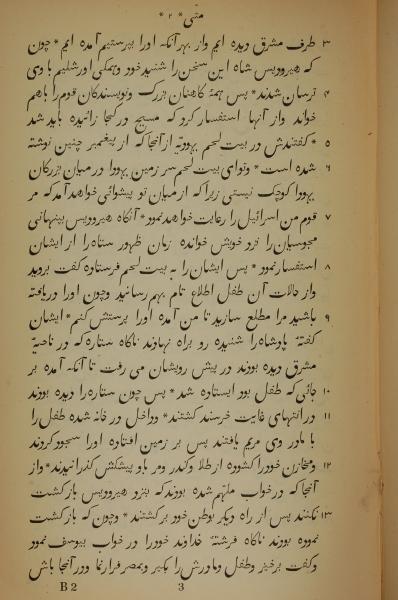 متی * ۲ *
۳ طرف مشرق دیده ایم واز بهر آنکه اورا بپرستیم آمده ایم * چون
که هیرودیس شاه این سخن را شنید خود وهمگی اورشلیم با وی
۴ ترسان شدند * پس همهٔ کاهنان بزرگ ونویسندگان قوم را باهم
خواند واز آنها استفسار کرد که مسیح در کجا زائیده باید شد
۵ * گفتندش در بیت لحم یهودیّه از آنجا که از پیغمبر چنین نوشته
۶ شده است * وتوای بیت لحم سر زمین یهودا در میان بزرگان
یهودا کوچک نیستی زیرا که از میان تو پیشوائی خواهد آمد که مر
۷ قوم من اسرائیل را رعایت خواهد نمود * آنگاه هیرودیس بپنهانی
مجوسیان را نزد خویش خوانده زمان ظهور ستاره را از ایشان
۸ استفسار نمود * پس ایشان را به بیت لحم فرستاده گفت بروید
واز حالات آن طفل اطلاع تام بهم رسانید وچون اورا دریافته
۹ باشید مرا مطلع سازید تا من آمده اورا پرستش کنم * ایشان
گفتهٔ پادشاه را شنیده رو براه نهادند ناگاه ستاره که در ناحیهٔ
مشرق دیده بودند در پیش رویشان می رفت تا آنکه آمده بر
۱۰ جائی که طفل بود ایستاده شد * پس چون ستاره را دیده بودند
۱۱ در انتهای غایت خرسند گشتند * وداخل در خانه شده طفل را
با مادر وی مریم یافتند پس بر زمین افتاده اورا سجود کردند
۱۲ ومخازن خودرا گشوده از طلا وکندر ومر باو پیشکش گذرانیدند * واز
آنجا که در خواب ملهم شده بودند که بنزد هیرودیس بازگشت
۱۳ نکنند پس از راه دیگر بوطن خود برگشتند * وچون که بازگشت
نموده بودند ناگاه فرشتهٔ خداوند خودرا در خواب بیوسف نمود
وگفت برخیز وطفل ومادرش را بگیر وبمصر فرار نما ودر آنجا باش
B 2 3